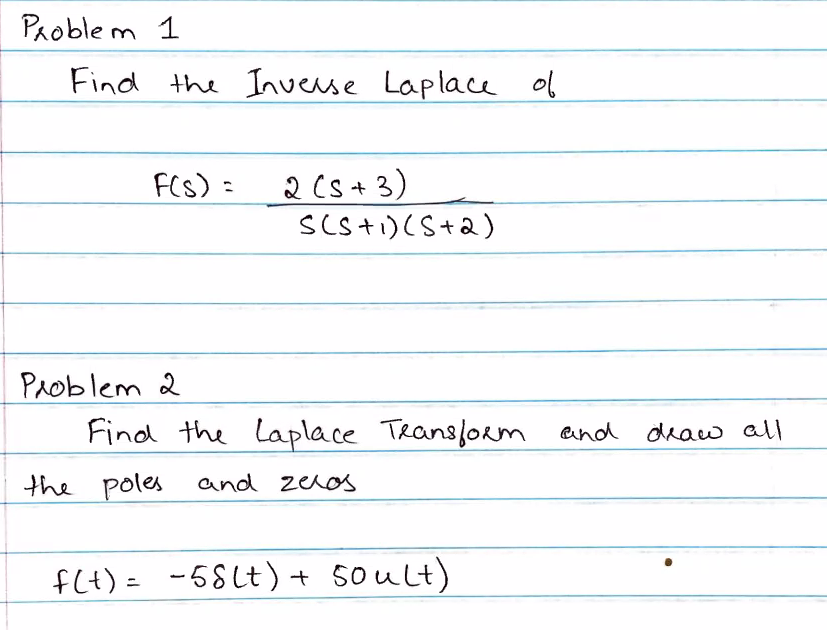 Problem 1
Find the Inverse Laplace of
F(s) = 2(s+3)
s(s+1)(s+2)
Problem 2
Find the Laplace Transform and draw all
the poles and zeros
f(t) = -5δ(t) + 50u(t)